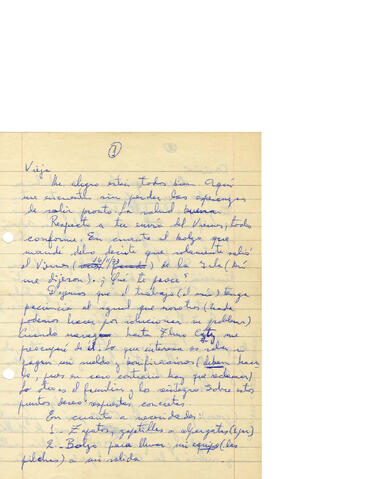 1
Vieja
Me alegro estén todos bien. Aquí
me encuentro sin perder las esperanzas
de salir pronto. La salud buena.
Respecto a tu envío del Viernes, todo
conforme. En cuanto al bolso que
mandé debo decirte que solamente salió
el Viernes (16/11/73) de la Isla (así
me dijeron). ¿Qué te parece?
Dejemos que el trabajo (el mío) tenga
paciencia al igual que nosotros (nada
podemos hacer por solucionar su problema)
Cuando navegue hasta Enero no me
preocupa de él. Lo que interesa es saber si
pagan mi sueldo y bonificaciones (deben hacer
lo, pues en caso contrario hay que reclamar)
lo dice el y lo Sobre estos
puntos deseo respuestas concretas.
En cuanto a necesidades:
1.- Zapatos, zapatillas o alpargatas
2.- Bolso para llevar mi equipo (las
pilchas) a mi salida